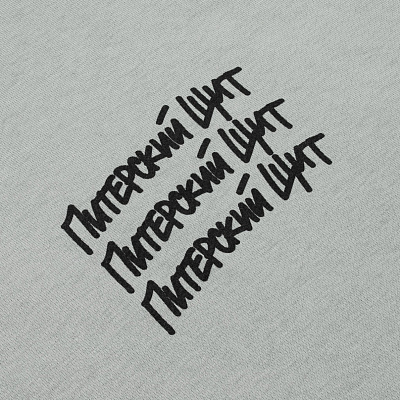 Питерский Щит
Питерский Щит
Питерский Щит